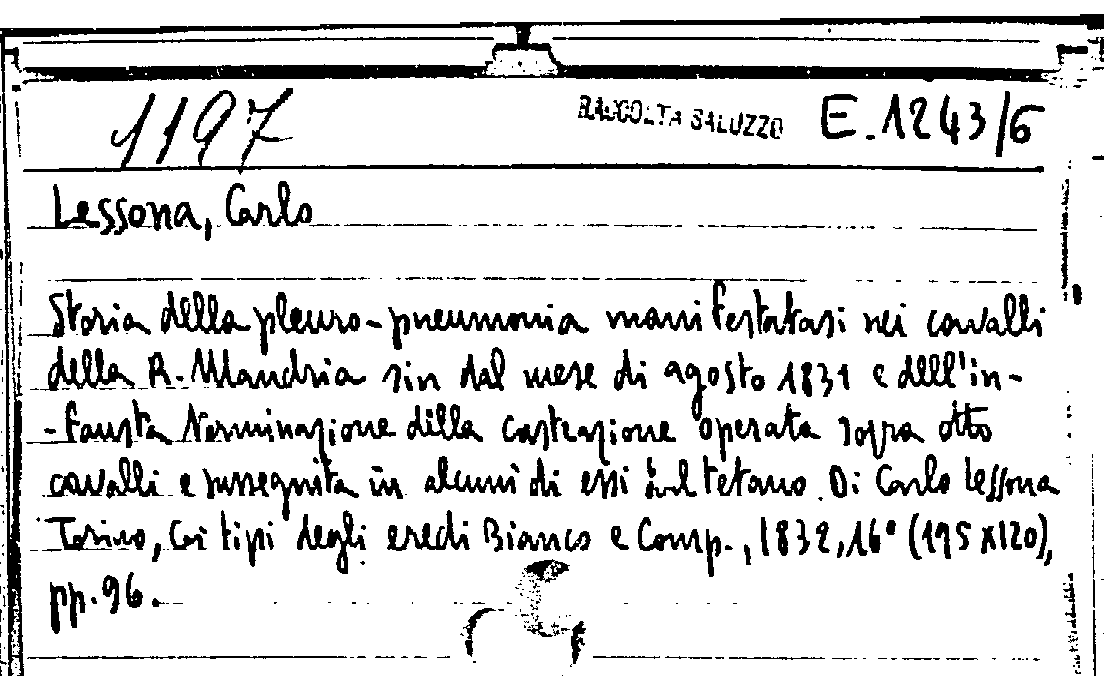 1197 RACCOLTA SALUZZO E.1243/6
Lessona, Carlo
Storia della pleuro-pneumonia manifestatasi nei cavalli
della R. Mandria sin dal mese di agosto 1831 e dell'in-
-fausta terminazione della castrazione operata sopra otto
cavalli e susseguita in alcuni di essi dal tetano. Di Carlo Lessona
Torino, Coi tipi degli eredi Bianco e Comp., 1832, 16° (195x120),
pp. 96.